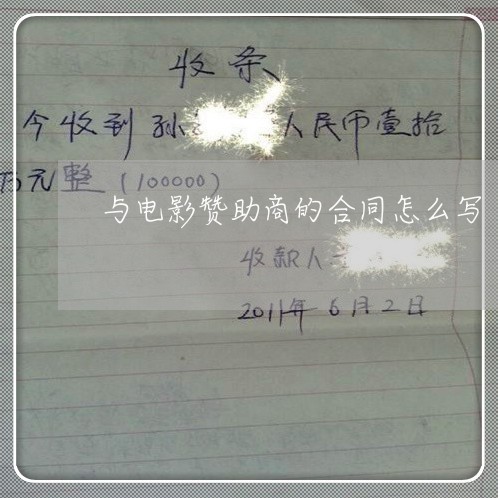 收条
今收到 孙 人民币壹拾
万元整（100000）
与电影赞助商的合同怎么写
收款人
2011年6月2日